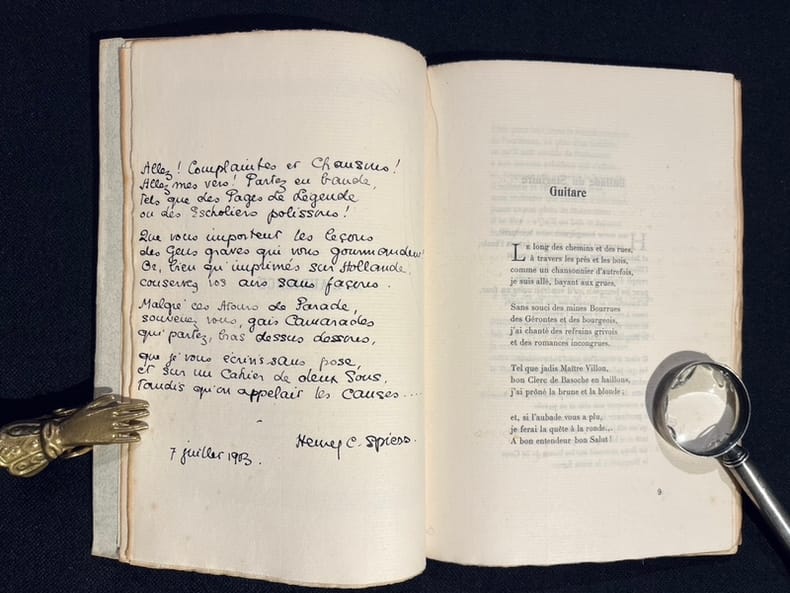 Allez! Complaintes et Chansons!
Allez mes vers! Partez en bande,
tels que des Pages de Légende
ou des Escholiers polissons!
Que vous importent les leçons
des Gens graves qui vous gourmandent!
Or, bien qu'imprimés sur Hollande,
conservez vos airs sans façons.
Malgré ces Atours de Parade,
souvenez vous, gais Camarades
qui partez, bras dessus dessous,
que je vous écrivis sans pose,
et sur un Cahier de deux Sous,
tandis qu'on appelait les causes...
7 juillet 1903.
Henry C. Spiess.
Guitare
LE long des chemins et des rues,
à travers les prés et les bois,
comme un chansonnier d'autrefois,
je suis allé, bayant aux grues,
Sans souci des mines Bourrues
des Gérontes et des bourgeois,
j'ai chanté des refrains grivois
et des romances incongrues.
Tel que jadis Maître Villon,
bon Clerc de Basoche en haillons,
j'ai prôné la brune et la blonde;
et, si l'aubade vous a plu,
je ferai la quête à la ronde...
A bon entendeur bon Salut!
9